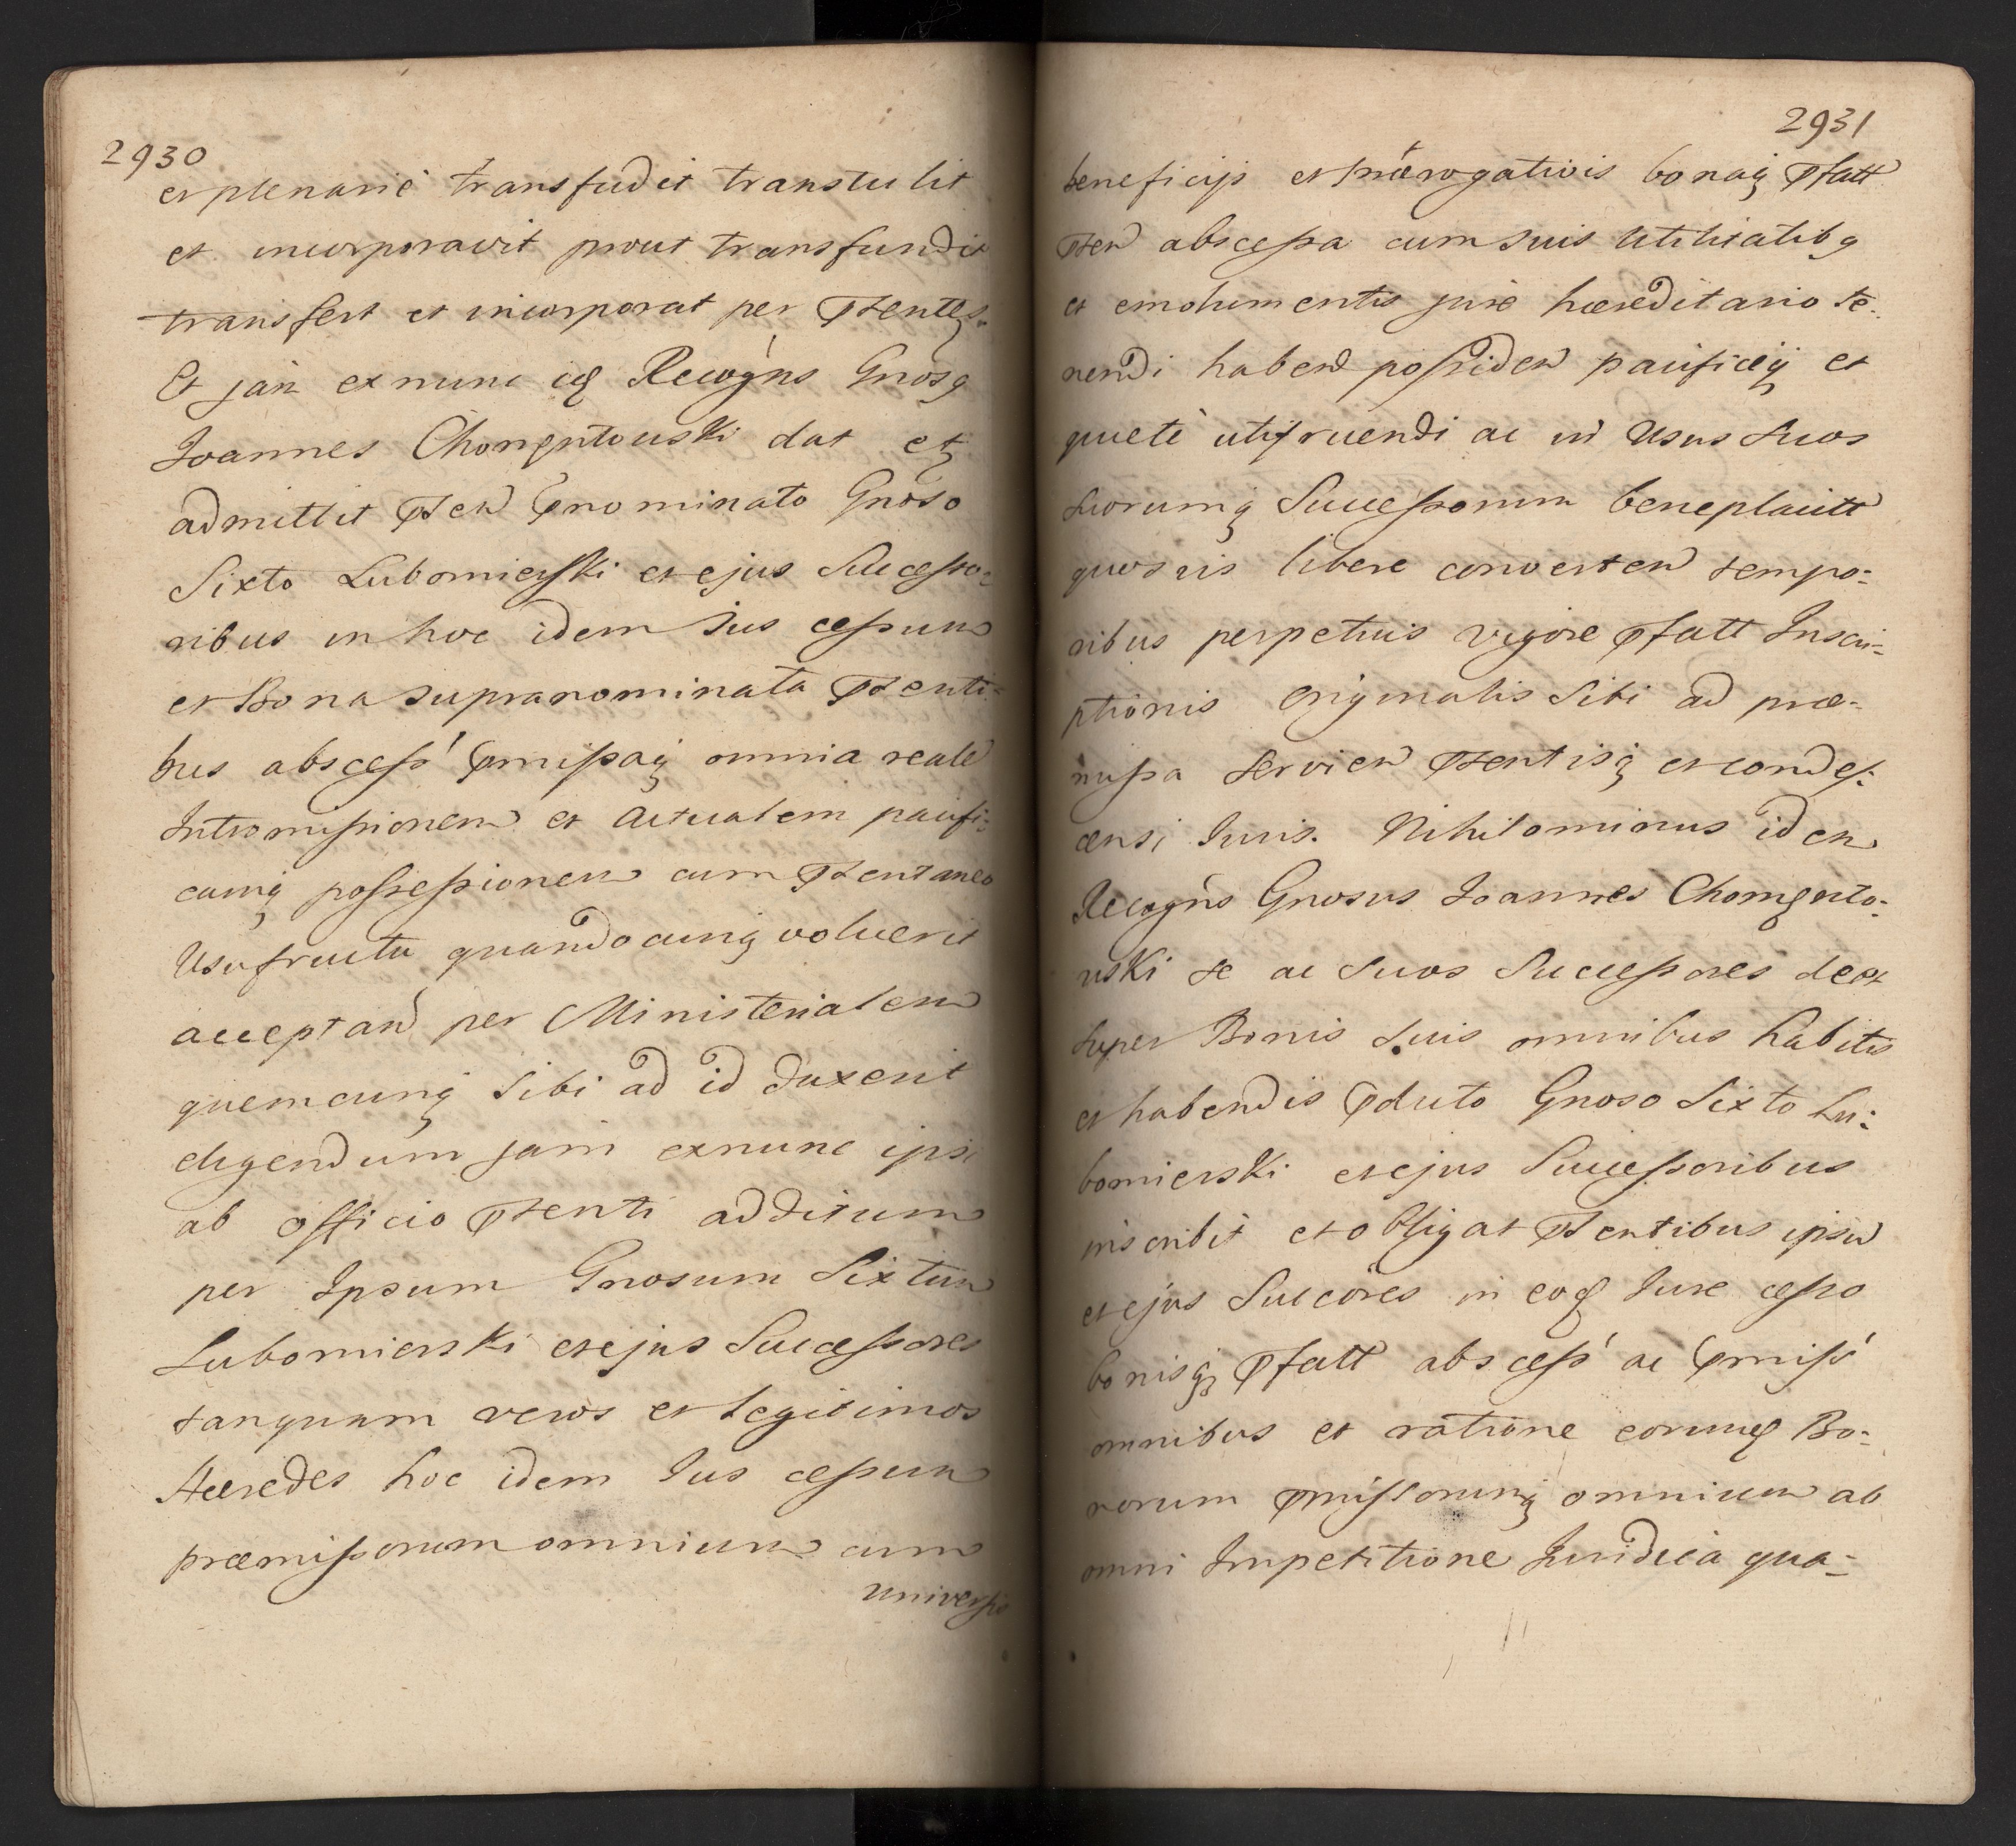 2930
et plenarie transfudit transtulit
et incorporavit prout transfundit
transfert et incorporat per Pstentes.
Et jam ex nunc id Recogns Gnosq
Joannes Chomentouski dat et
admittit Psten Pnominato Gnoso
Sixto Lubomierski et ejus Successo=
ribus in hoc idem Jus cessum
et Bona supranominata Pstenti=
bus abscess Pmissaq omnia realem
Intromissionem et Actualem pacifi=
camq possessionem cum Pstentaneo
Usufructu quandocunq voluerit
acceptan per Ministerialem
quemcunq sibi ad id duxerit
eligendum jam exnunc ipsi
ab officio Pstenti additum
per Ipsum Gnosum Sixtum
Lubomierski et ejus Successores
tanquam veros et legitimos
Hæredes hoc idem Jus cessum
præmissorum omnium cum
universis
2931
beneficijs et prærogativis bonaq Pfatt
Psten abscessa cum suis Utilitatibq
et emolumentis jure hæreditario te=
nendi haben possiden pacificeq et
quiete utifruendi ac in Usus suos
suorumq Successorum beneplacitt
quosvis libere converten tempo=
ribus perpetuis vigore Pfatt Inscri=
ptionis originalis sibi ad præ=
missa servien Pstentisq et condes=
censi Juris. Nihilominus idem
Recogns Gnosus Joannes Chomento=
uski se ac suos Successores de et
super Bonis suis omnibus habitis
et habendis Pducto Gnoso Sixto Lu=
bomierski et ejus Successoribus
inscribit et obligat Pstentibus ipsum
et ejus Succores in eod Jure cesso
bonisq Pfatt abscess ac Pmiss
omnibus et ratione eorund Bo=
norum Pmissorumq omnium ab
omni Impetitione Juridica qua=